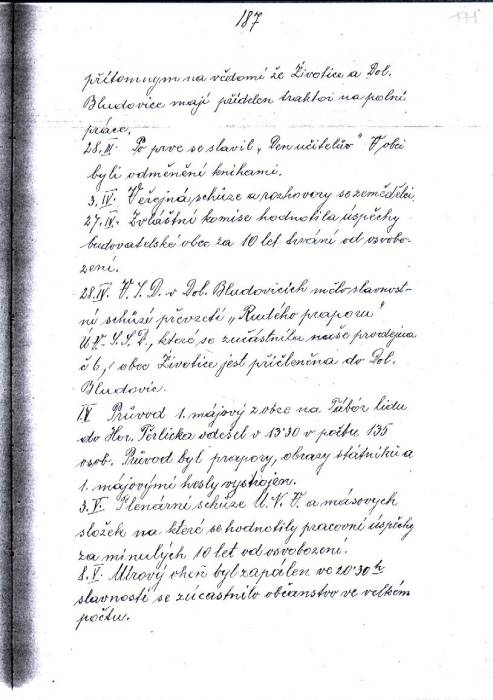 187
171
přítomnym na vědomí že Životice a Dol.
Bludovice mají přidelen traktor na polní
práce.
28.III. Po prve se slavil „Den učitelův" V obci
byli odměnění knihami.
3. IV. Veřejná schůze a rozhovory se zemědělci.
27. IV. Zvláštní komise hodnotila úspěchy
budovatelské obce za 10 let trvání od osvobo-
zení.
28. IV. V. J. D. v Dol. Bludovicích mělo slavnost-
ní schůzi převzetí „Rudého praporu"
které se zúčastnila naše prodejna
č 6, obec Životice jest přičleněna do Dol.
Bludovic.
1.V Průvod 1. májový z obce na Tábor lidu
do Hor. Těrlicka odešel v 13·30 v počtu 135
osob. Průvod byl prapory, obrazy státníků a
1. májovými hesly vystrojen.
3. V. Plenární schůze M. N. V. a másových
složek na které se hodnotily pracovní úspěchy
za minulých 10 let od osvobození.
8. V. Mírový oheň byl zapálen ve 20·30 h
slavnosti se zúčastnilo občanstvo ve velkém
počtu.